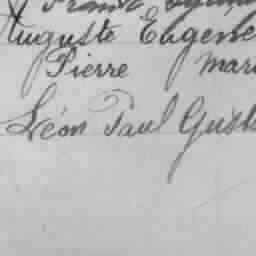 Auguste Eugene
Pierre Mari
Léon Paul Gust